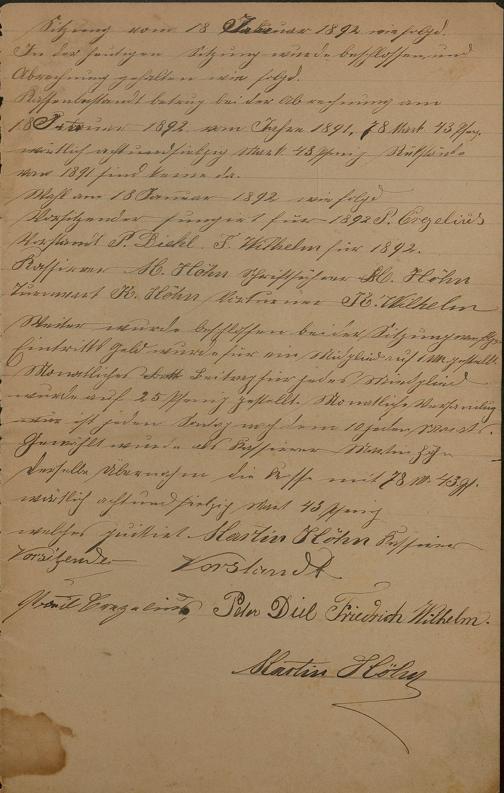 Sitzung vom 18 Januar 1892 wie folgd.
In der heutigen Sitzung wurde beschlossen und
Abrechnung gehalten wie folgd.
Kassenbestandt betrug bei der Abrechnung am
18 Januar 1892 vom Jahre 1891, 78 Mark 43 Pfg.
wörtlich acht und siebzig Mark 43 Pfenig Rükstände
von 1891 sind keine da.
Wahl am 18 Januar 1892 wie folgd
Vorsitzender fungirt für 1892 P. Cregelius
Vorstandt P. Diehl. F. Wilhelm für 1892.
Kassierer M. Höhn Schriftführer M. Höhn
Turnwart K. Höhn Vorturner K. Wilhelm
Weiter wurde beschlossen bei der Sitzung wie folgd
Eintritts Geld wurde für ein Mitglied auf 1 M. gestellt
Monatliches Beitrag für jedes Mitglied
wurde auf 25 Pfenig gestellt. Monatliche Versamlug
ist jeden Sontag nach dem 10 jeden Monats.
Gewählt wurde als Kassierer Martin Höhn
Derselbe übernahm die Kasse mit 78 M. 43 Pf.
wörtlich acht und siebzig Mark 43 Pfenig
welches quitirt Martin Höhn Kassierer
Vorsitzender Vorstandt
Cregelius Peter Diel Friedrich Wilhelm.
Martin Höhn